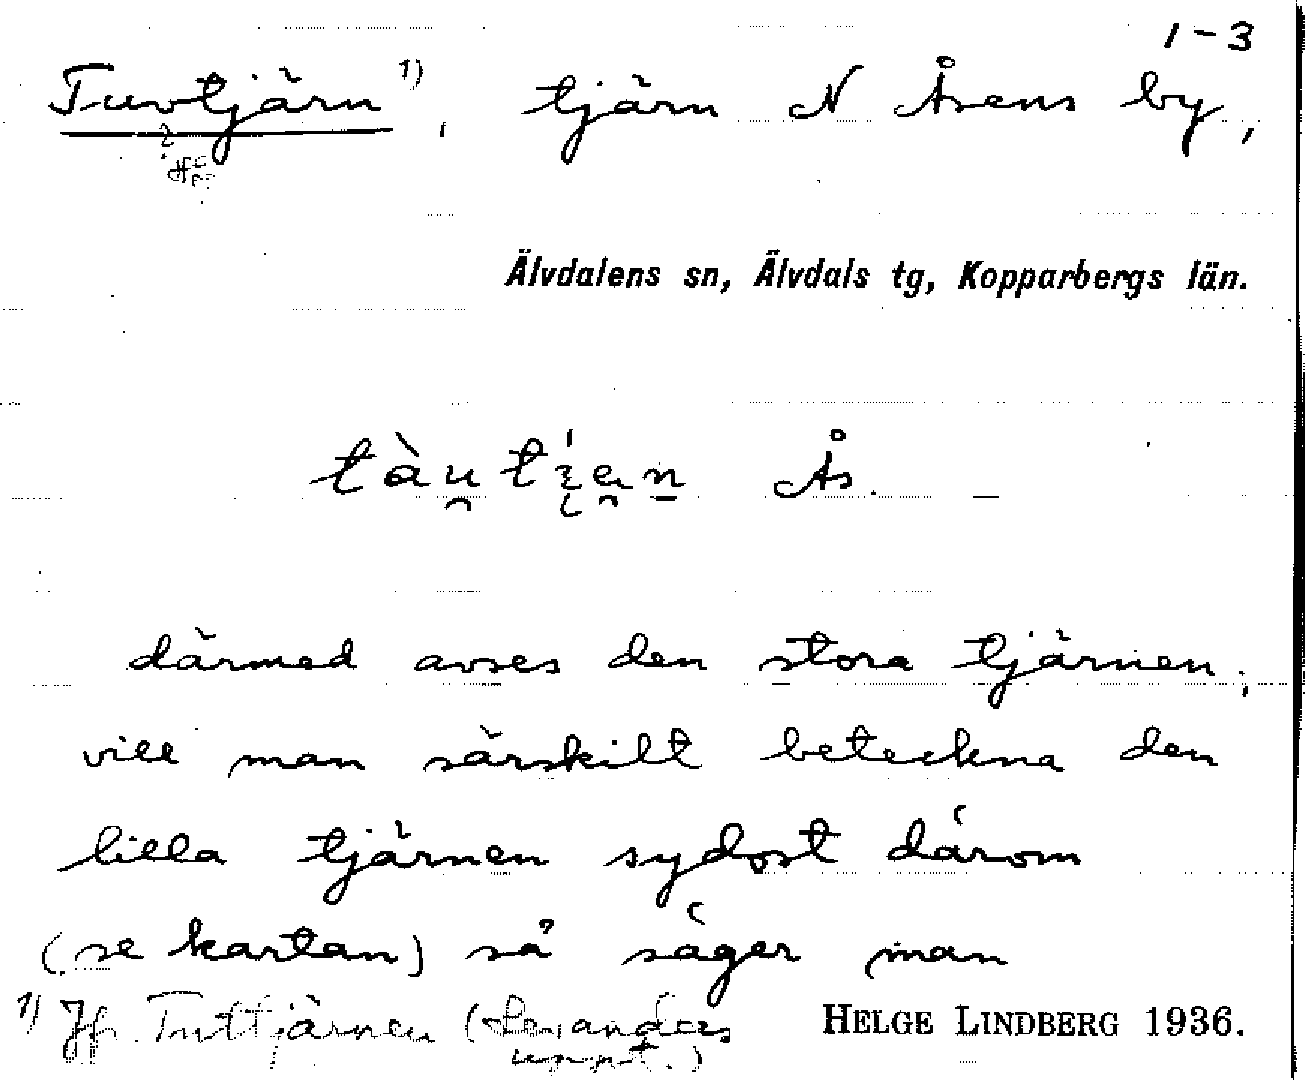 1-3
Tuvtjärn 1), tjärn N Åsens by,
Älvdalens sn, Älvdals tg, Kopparbergs län.
Ås.
därmed avses den stora tjärnen;
vill man särskilt beteckna den
lilla tjärnen sydost därom
(se kartan) så säger man
1) Jfr Tuttjärnen (Levanders
HELGE LINDBERG 1936.